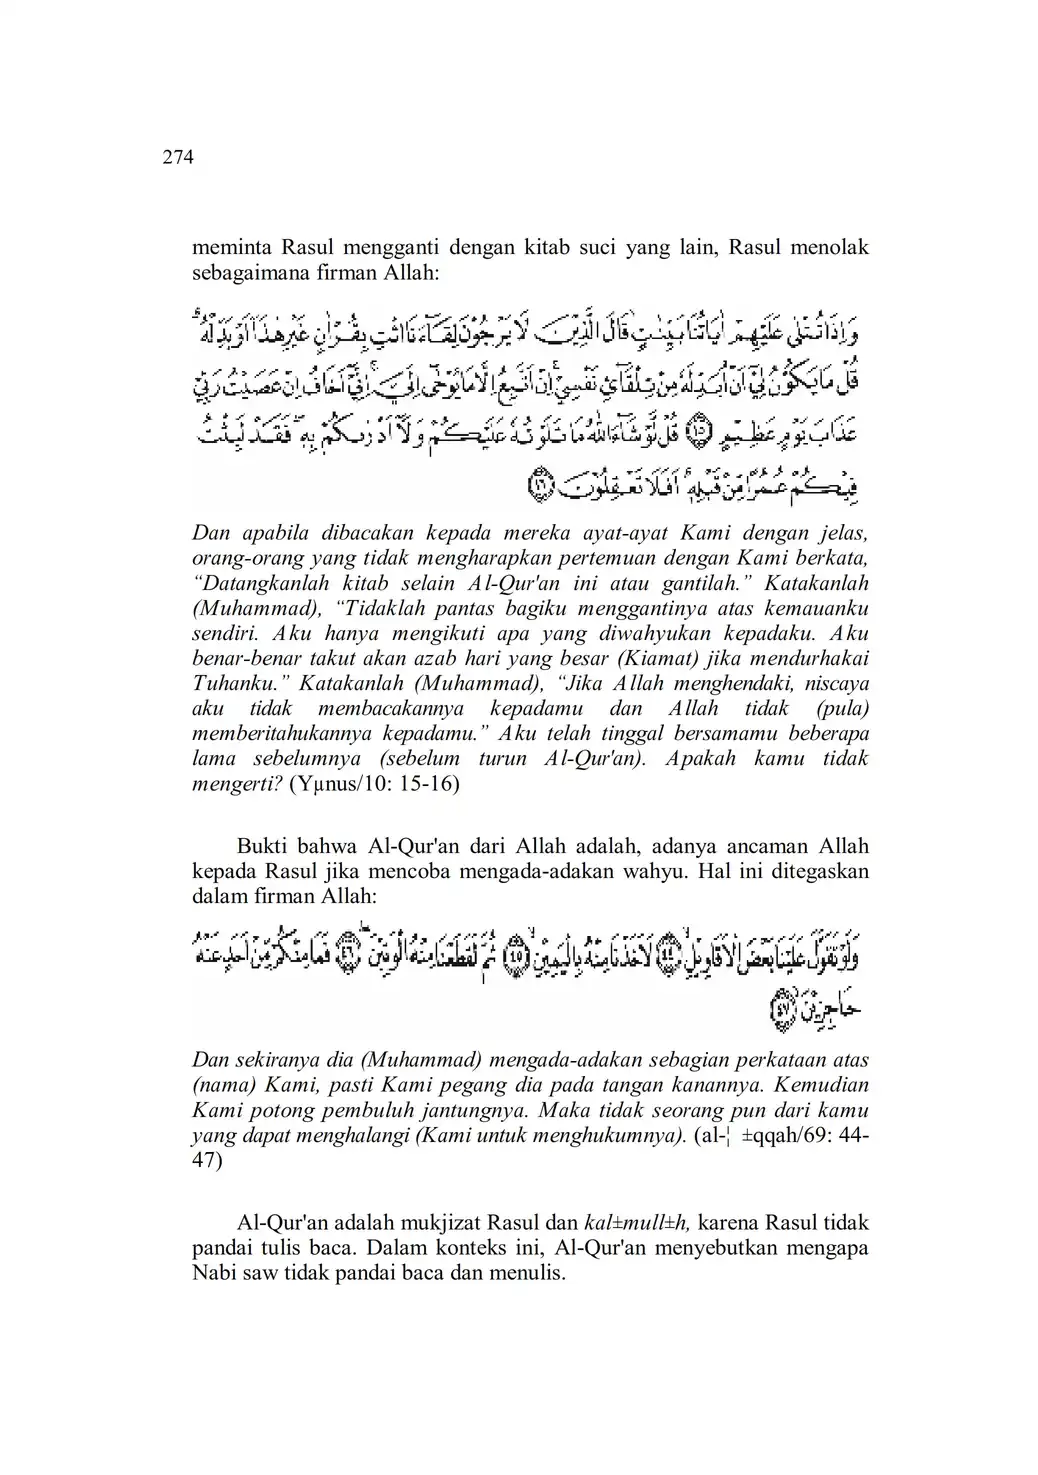 274
meminta Rasul mengganti dengan kitab suci yang lain, Rasul menolak
sebagaimana firman Allah:
وَاِذَا تُتْلٰى عَلَيْهِمْ اٰيَاتُنَا بَيِّنٰتٍۙ قَالَ الَّذِيْنَ لَا يَرْجُوْنَ لِقَاۤءَنَا ائْتِ بِقُرْاٰنٍ غَيْرِ هٰذَآ اَوْ بَدِّلْهُ ۗ
قُلْ مَا يَكُوْنُ لِيْٓ اَنْ اُبَدِّلَهٗ مِنْ تِلْقَاۤئِ نَفْسِيْ ۚ اِنْ اَتَّبِعُ اِلَّا مَا يُوْحٰٓى اِلَيَّ ۚ اِنِّيْٓ اَخَافُ اِنْ عَصَيْتُ رَبِّيْ
عَذَابَ يَوْمٍ عَظِيْمٍ ١٥ قُلْ لَّوْ شَاۤءَ اللّٰهُ مَا تَلَوْتُهٗ عَلَيْكُمْ وَلَآ اَدْرٰىكُمْ بِهٖ ۖ فَقَدْ لَبِثْتُ
فِيْكُمْ عُمُرًا مِّنْ قَبْلِهٖ ۗ اَفَلَا تَعْقِلُوْنَ ١٦
Dan apabila dibacakan kepada mereka ayat-ayat Kami dengan jelas,
orang-orang yang tidak mengharapkan pertemuan dengan Kami berkata,
“Datangkanlah kitab selain Al-Qur'an ini atau gantilah.” Katakanlah
(Muhammad), “Tidaklah pantas bagiku menggantinya atas kemauanku
sendiri. Aku hanya mengikuti apa yang diwahyukan kepadaku. Aku
benar-benar takut akan azab hari yang besar (Kiamat) jika mendurhakai
Tuhanku.” Katakanlah (Muhammad), “Jika Allah menghendaki, niscaya
aku tidak membacakannya kepadamu dan Allah tidak (pula)
memberitahukannya kepadamu.” Aku telah tinggal bersamamu beberapa
lama sebelumnya (sebelum turun Al-Qur'an). Apakah kamu tidak
mengerti? (Yµnus/10: 15-16)
Bukti bahwa Al-Qur'an dari Allah adalah, adanya ancaman Allah
kepada Rasul jika mencoba mengada-adakan wahyu. Hal ini ditegaskan
dalam firman Allah:
وَلَوْ تَقَوَّلَ عَلَيْنَا بَعْضَ الْاَقَاوِيْلِۙ ٤٤ لَاَخَذْنَا مِنْهُ بِالْيَمِيْنِۙ ٤٥ ثُمَّ لَقَطَعْنَا مِنْهُ الْوَتِيْنَۖ ٤٦ فَمَا مِنْكُمْ مِّنْ اَحَدٍ عَنْهُ
حَاجِزِيْنَۙ ٤٧
Dan sekiranya dia (Muhammad) mengada-adakan sebagian perkataan atas
(nama) Kami, pasti Kami pegang dia pada tangan kanannya. Kemudian
Kami potong pembuluh jantungnya. Maka tidak seorang pun dari kamu
yang dapat menghalangi (Kami untuk menghukumnya). (al-¦ ±qqah/69: 44-
47)
Al-Qur'an adalah mukjizat Rasul dan kal±mull±h, karena Rasul tidak
pandai tulis baca. Dalam konteks ini, Al-Qur'an menyebutkan mengapa
Nabi saw tidak pandai baca dan menulis.